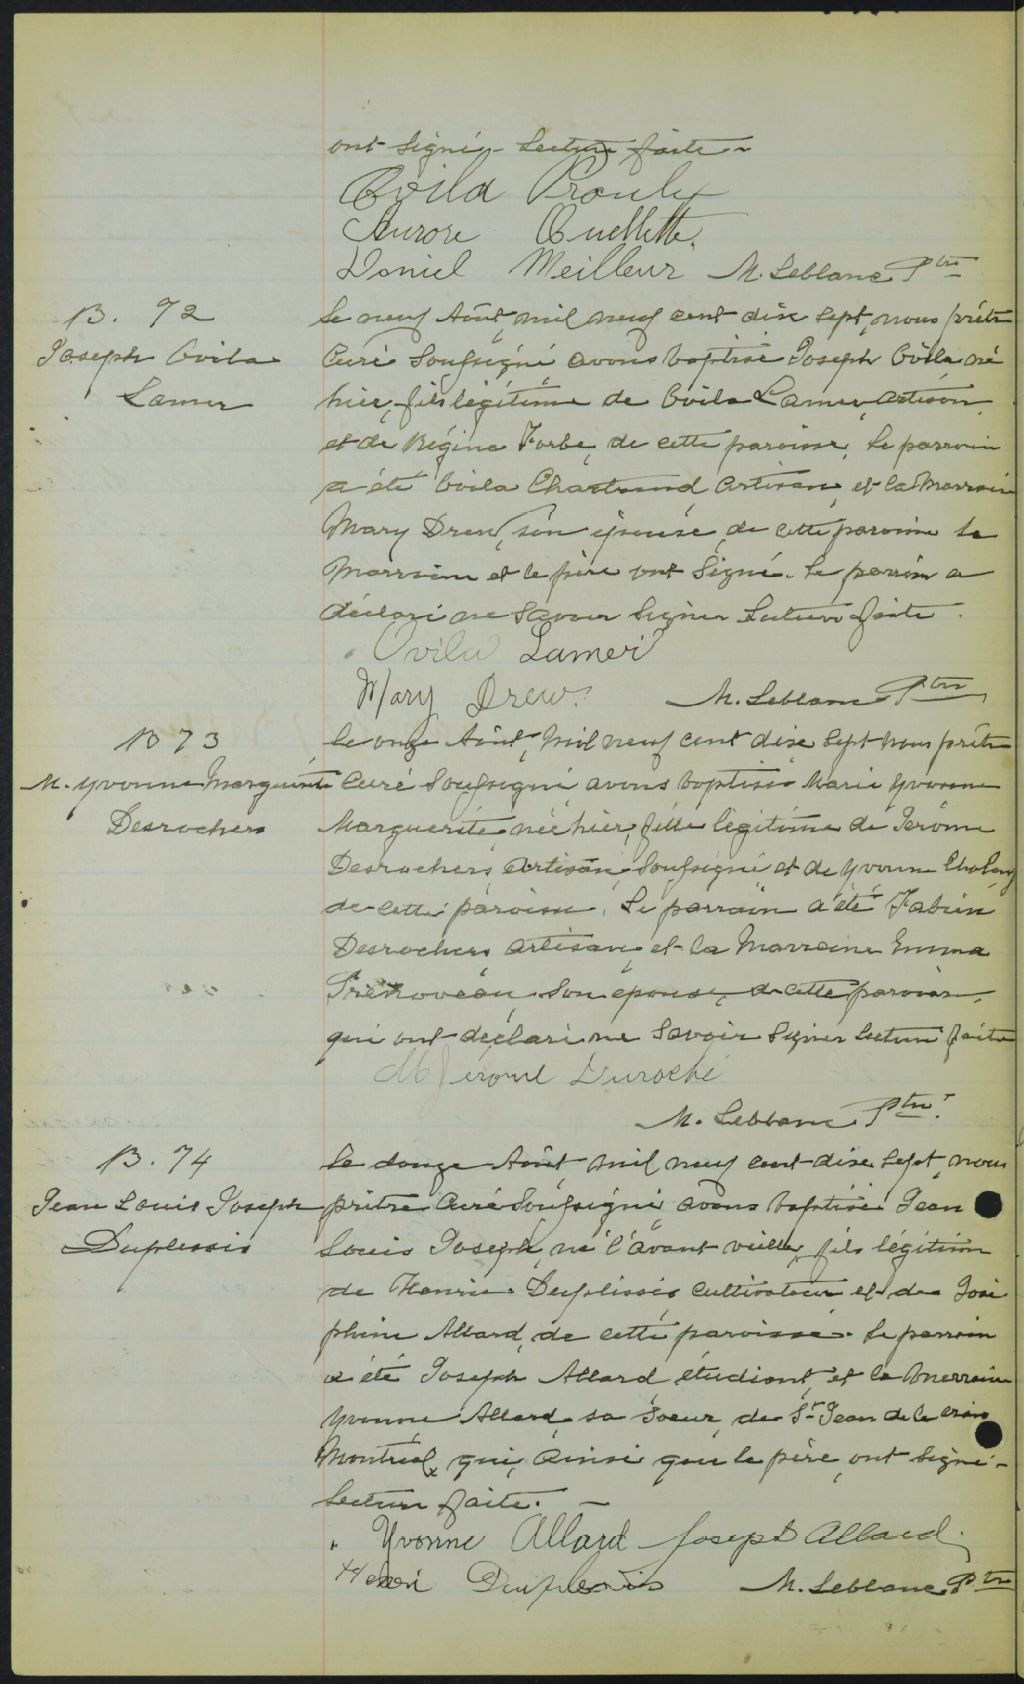 ont signé - Lecture faite -
Ovila Proulx
Aurore Ouellette.
Daniel Meilleur M. Leblanc Ptre
B. 72
Joseph Ovila
Lamer
Le neuf Août, mil neuf cent dix sept, nous prêtre
Curé soussigné avons baptisé Joseph Ovila né
hier, fils légitime de Ovila Lamer, artisan
et de Régina Forbe, de cette paroisse, le parrain
a été Ovila Chartrand Artisan, et la Marraine
Mary Drew, son épouse, de cette paroisse la
Marraine et le père ont signé. Le parrain a
déclaré ne savoir signer Lecture faite.
Ovila Lamer
Mary Drew. M. Leblanc Ptre
B 73
M. Yvonne Marguerite
Desrochers
Le onze Août, mil neuf cent dix sept nous prêtre
Curé soussigné avons baptisé Marie Yvonne
Marguerite née hier, fille légitime de Jérôme
Desrochers, artisan, soussigné et de Yvonne
de cette paroisse. Le parrain a été Fabien
Desrochers artisan, et la Marraine Emma
son épouse, de cette paroisse,
qui ont déclaré ne savoir signer Lecture faite
Jérome Duroché
M. Leblanc Ptre.
B. 74
Jean Louis Joseph
Duplessis
Le douze Août mil neuf cent dix sept, nous
prêtre Curé soussigné avons baptisé Jean
Louis Joseph, né l'avant veille, fils légitime
de Henri Duplissis cultivateur et de José
phine Allard, de cette paroisse. Le parrain
a été Joseph Allard étudiant, et la Marraine
Yvonne Allard sa soeur, de St Jean de la croix
Montréal, qui, ainsi que le père, ont signé -
Lecture faite. -
Yvonne Allard Joseph Allard.
Henri Duplessis M. Leblanc Ptre